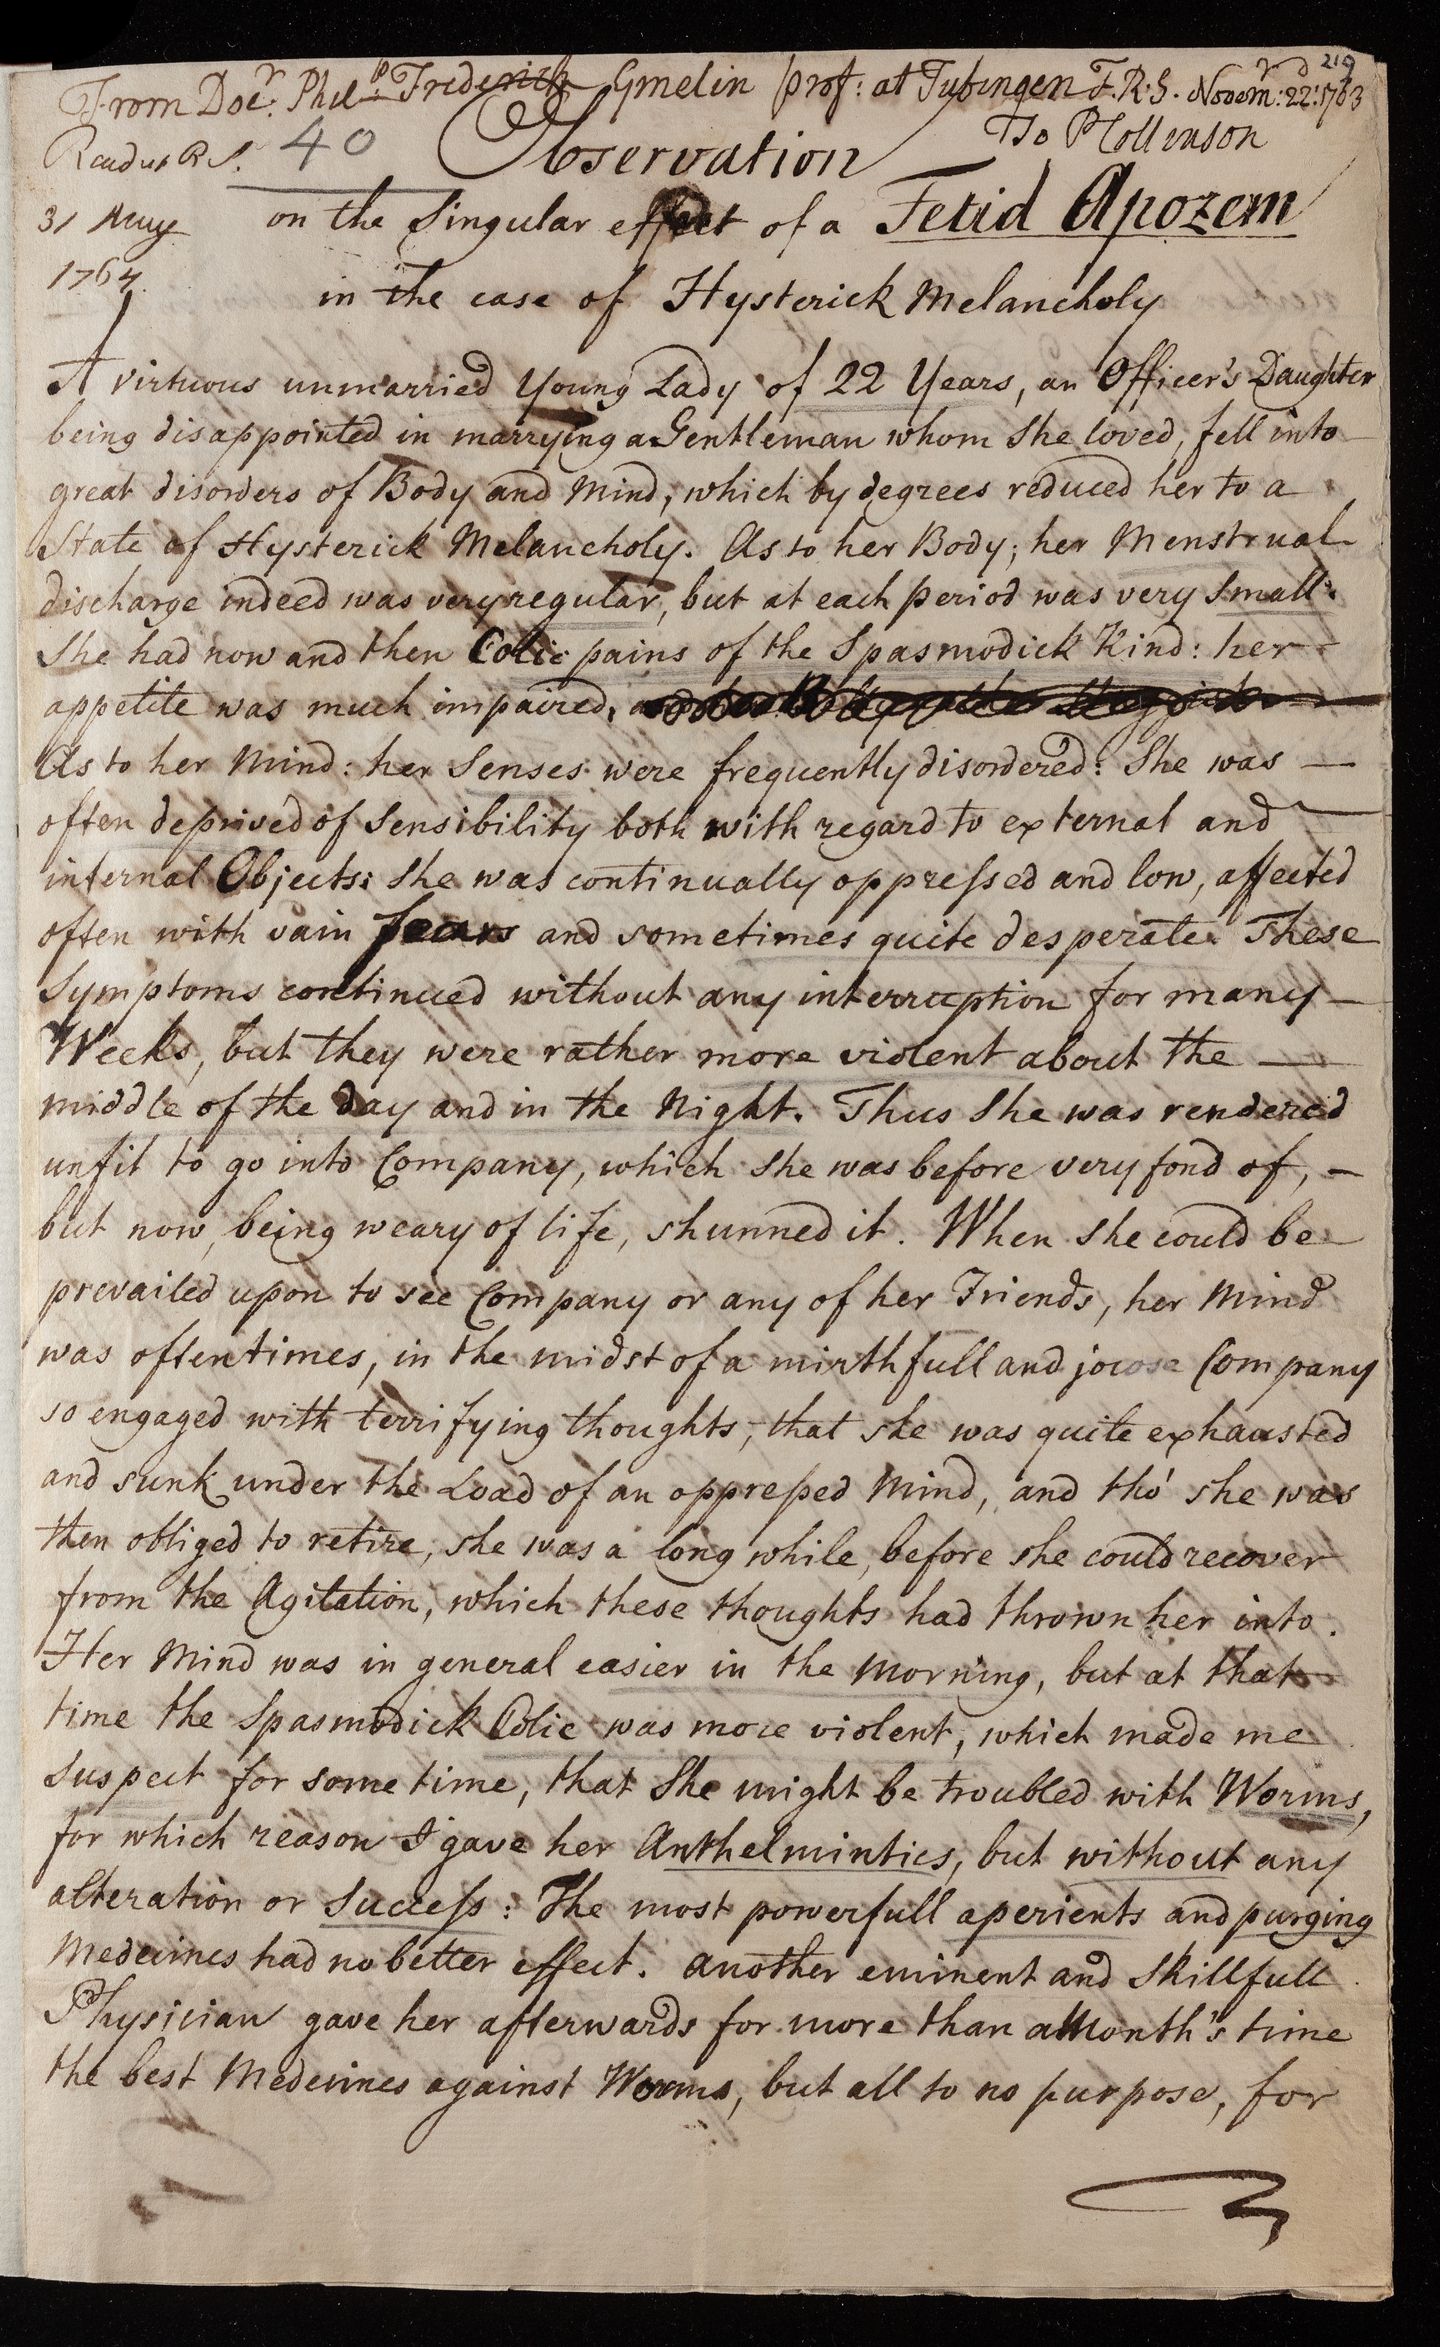 219
From Doc.r Phil.p Frederick Gmelin prof: at Tubingen F.R.S. Novem: 22.d 1763
To P Collinson
Read at R S. 40 Observation
31 May on the Singular effect of a Fetid Apozem
1764. in the case of Hysterick Melancholy
A virtuous unmarried Young Lady of 22 Years, an Officer's Daughter
being disappointed in marrying a Gentleman whom She loved, fell into
great disorders of Body and Mind, which by degrees reduced her to a
State of Hysterick Melancholy. As to her Body; her Menstrual
discharge indeed was very regular, but at each period was very Small:
She had now and then Colic pains of the Spasmodick Kind: her
appetite was much impaired,
As to her Mind: her Senses were frequently disordered: She was —
often deprived of Sensibility both with regard to external and
internal Objects: She was continually oppressed and low, affected
often with vain fears and sometimes quite desperate. These
Symptoms continued without any interruption for many —
Weeks, but they were rather more violent about the —
middle of the Day and in the Night. Thus She was rendered
unfit to go into Company, which She was before very fond of, —
but now, being weary of life, shunned it. When She could be
prevailed upon to see Company or any of her Friends, her Mind
was oftentimes, in the midst of a mirthfull and jocose Company
so engaged with terrifying thoughts, that she was quite exhausted
and sunk under the Load of an oppressed Mind, and tho' she was
then obliged to retire, she was a long while, before she could recover
from the Agitation, which these thoughts had thrown her into.
Her Mind was in general easier in the Morning, but at that
time the Spasmodick Colic was more violent, which made me
Suspect for some time, that She might be troubled with Worms,
for which reason I gave her Anthelmintics, but without any
alteration or Success: The most powerfull aperients and purging
Medecines had no better effect. Another eminent and Skillfull
Physician gave her afterwards for more than a Month's time
the best Medecines against Worms, but all to no purpose, for